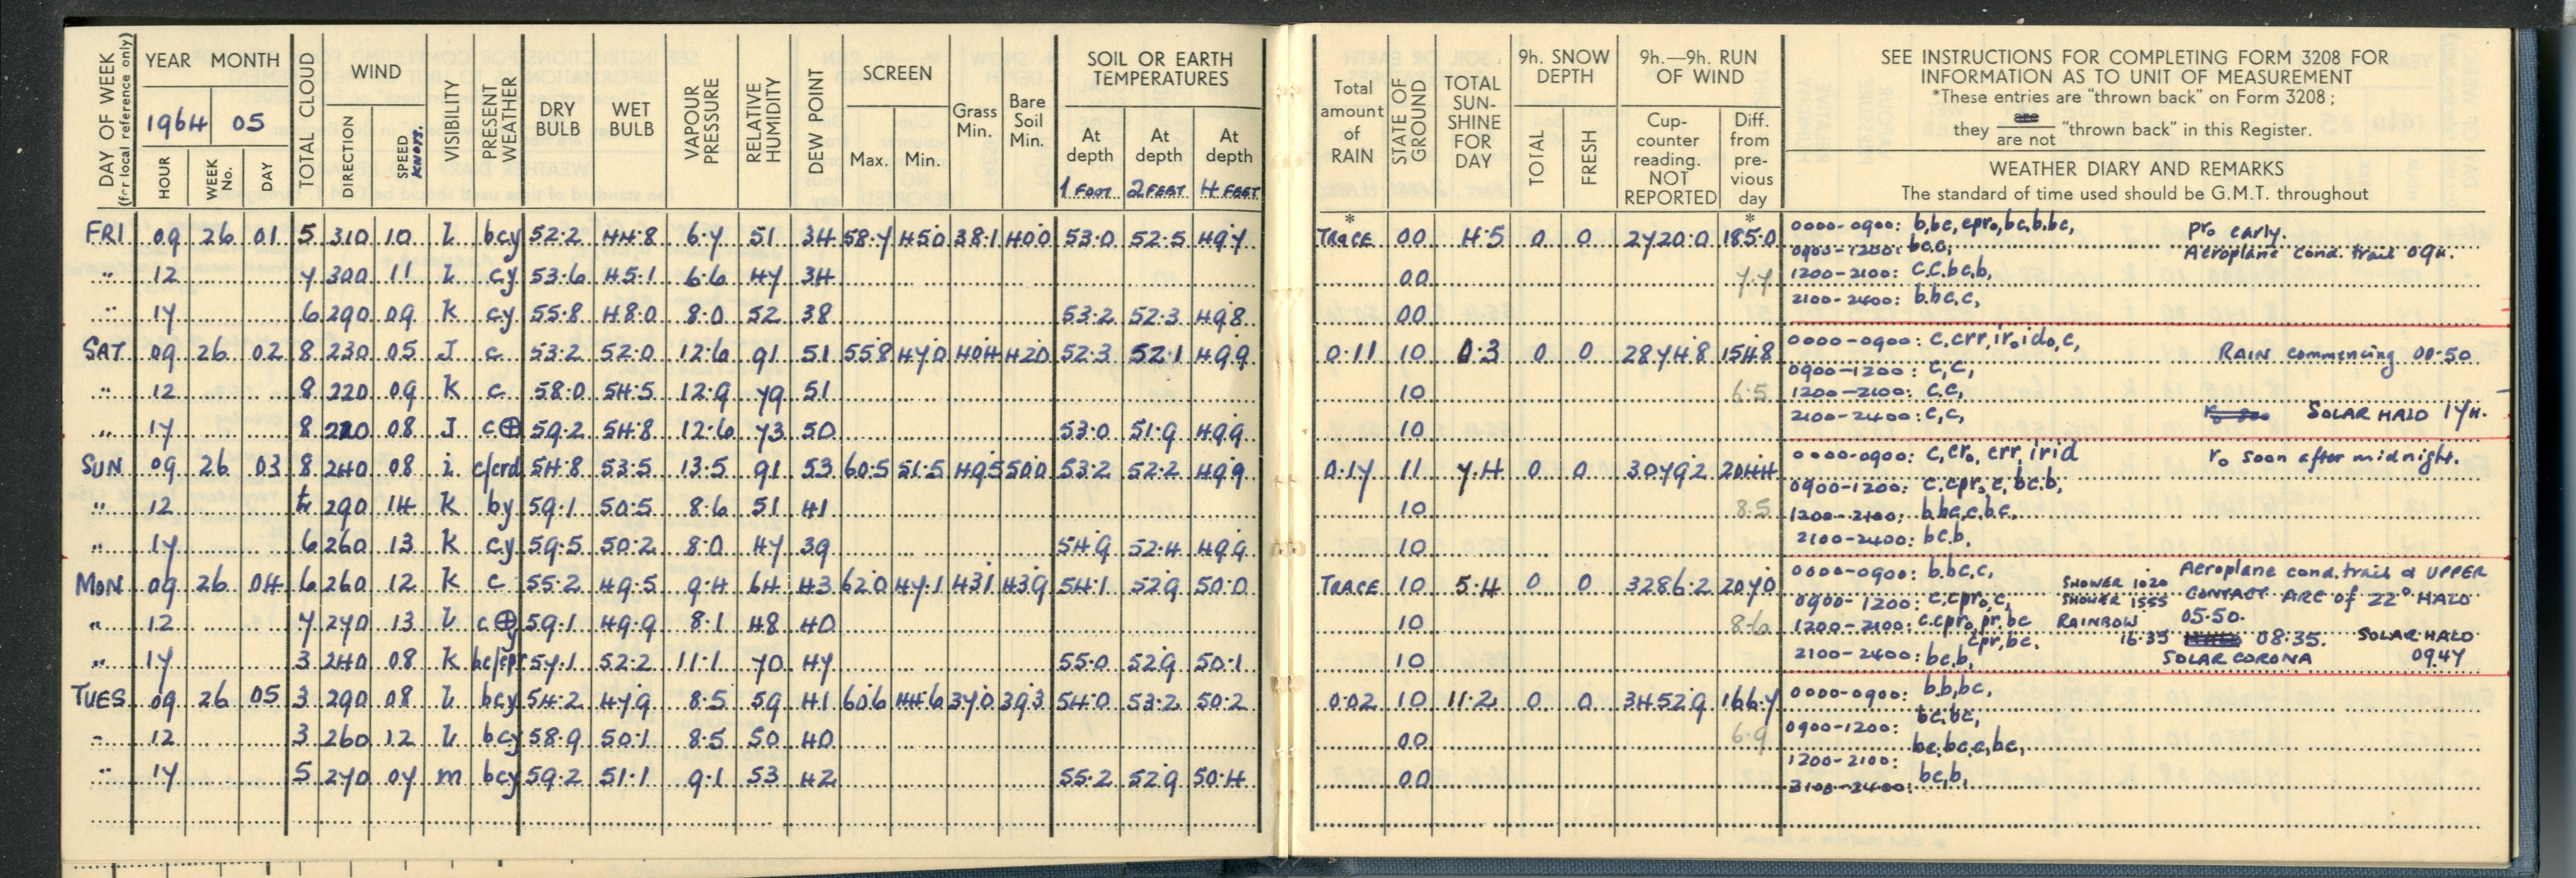 DAY OF WEEK (for local reference only)
YEAR MONTH
1964 05
HOUR WEEK No. DAY
TOTAL CLOUD
WIND
DIRECTION SPEED KNOTS.
VISIBILITY
PRESENT WEATHER
DRY BULB
WET BULB
VAPOUR PRESSURE
RELATIVE HUMIDITY
DEW POINT
SCREEN
Max. Min.
Grass Min.
Bare Soil Min.
SOIL OR EARTH TEMPERATURES
At depth 1 FOOT
At depth 2 FEET
At depth 4 FEET
FRI 09 26 01 5 310 10 L bcy 52.2 44.8 6.7 51 34 58.7 45.0 38.1 40.0 53.0 52.5 49.7
" 12 7 300 11 L cy 53.6 45.1 6.6 47 34
" 17 6 290 09 K cy 55.8 48.0 8.0 52 38 53.2 52.3 49.8
SAT 09 26 02 8 230 05 J c 53.2 52.0 12.6 91 51 55.8 47.0 40.4 42.0 52.3 52.1 49.9
" 12 8 220 09 K c 58.0 54.5 12.9 79 51
" 17 8 220 08 J c⊕ 59.2 54.8 12.6 73 50 53.0 51.9 49.9
SUN 09 26 03 8 240 08 i c/crd 54.8 53.5 13.5 91 53 60.5 51.5 49.5 50.0 53.2 52.2 49.9
" 12 290 14 K by 59.1 50.5 8.6 51 41
" 17 6 260 13 K cy 59.5 50.2 8.0 47 39 54.9 52.4 49.9
MON 09 26 04 6 260 12 K c 55.2 49.5 9.4 64 43 62.0 47.1 43.1 43.9 54.1 52.9 50.0
" 12 7 270 13 L c⊕y 59.1 49.9 8.1 48 40
" 17 3 240 08 K bc/cpr 57.1 52.2 11.1 70 47 55.0 52.9 50.1
TUES 09 26 05 3 290 08 L bcy 54.2 47.9 8.5 59 41 60.6 44.6 37.0 39.3 54.0 53.2 50.2
" 12 3 260 12 L bcy 58.9 50.1 8.5 50 40
" 17 5 270 07 m bcy 59.2 51.1 9.1 53 42 55.2 52.9 50.4
Total amount of RAIN
STATE OF GROUND
TOTAL SUN-SHINE FOR DAY
9h. SNOW DEPTH
TOTAL FRESH
9h.—9h. RUN OF WIND
Cup-counter reading. NOT REPORTED
Diff. from pre-vious day
SEE INSTRUCTIONS FOR COMPLETING FORM 3208 FOR
INFORMATION AS TO UNIT OF MEASUREMENT
*These entries are "thrown back" on Form 3208;
they are / are not "thrown back" in this Register.
WEATHER DIARY AND REMARKS
The standard of time used should be G.M.T. throughout
* *
TRACE 00 4.5 0 0 2720.0 185.0
00 7.7
00
0000-0900: b,bc, cpr₀,bc,b.bc, pr₀ early.
0900-1200: bc,c, Aeroplane cond. trail 09H.
1200-2100: c,c.bc,b,
2100-2400: b.bc,c,
0.11 10 0.3 0 0 2874.8 154.8
10 6.5
10
0000-0900: c,crr,ir₀id₀,c, RAIN commencing 00.50
0900-1200: c,c,
1200-2100: c.c,
2100-2400: c,c, SOLAR HALO 17H.
0.17 11 7.4 0 0 3079.2 204.4
10 8.5
10
0000-0900: c,cr₀, crr, irid r₀ soon after midnight.
0900-1200: c.cpr₀, c, bc.b,
1200-2100: b.bc,c.bc,
2100-2400: bc.b,
TRACE 10 5.4 0 0 3286.2 207.0
10 8.6
10
0000-0900: b.bc,c, Aeroplane cond. trail & UPPER
0900-1200: c,cpr₀,c, SHOWER 1020 SHOWER 1555 CONTACT ARC of 22° HALO
1200-2100: c.cpr₀,pr,bc RAINBOW 16.35 05.50.
cpr,bc, 08.35. SOLAR HALO
2100-2400: bc,b, SOLAR CORONA 0947
0.02 10 11.2 0 0 3452.9 166.7
00 6.9
00
0000-0900: b.b,bc,
0900-1200: bc.bc,
1200-2100: bc,bc,c,bc,
2100-2400: bc,b,